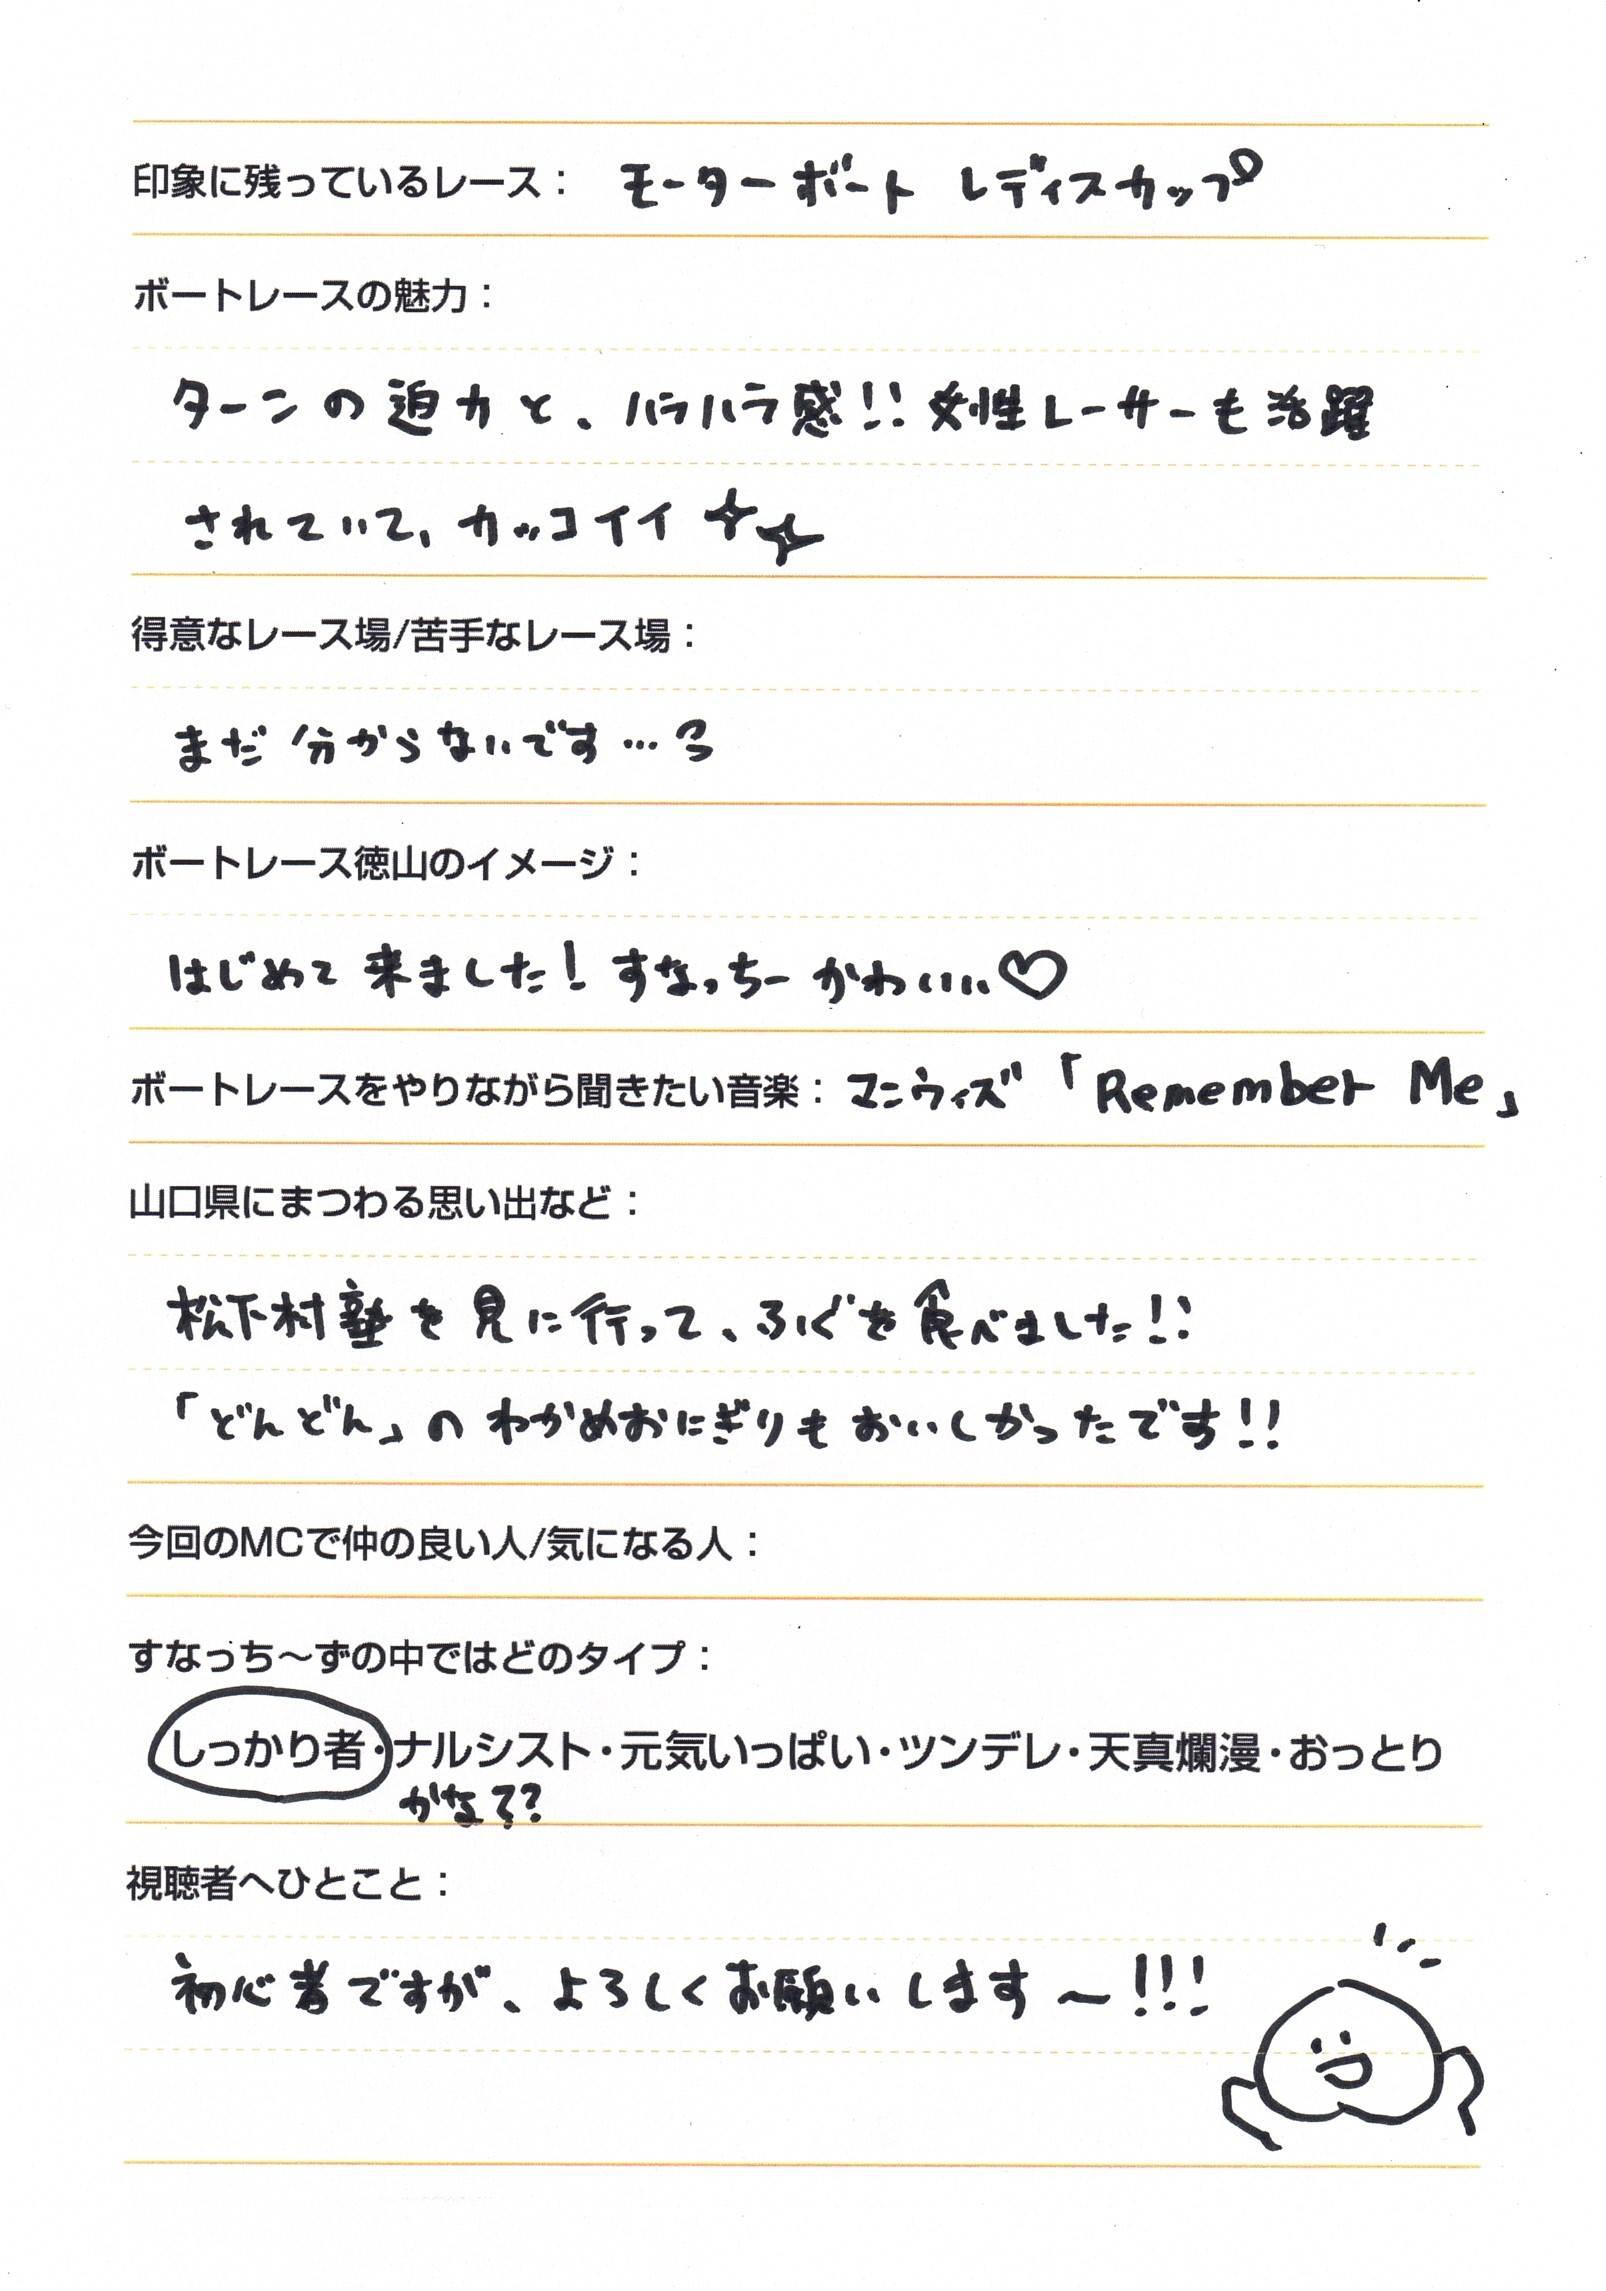 印象に残っているレース： モーターボート レディスカップ
ボートレースの魅力：
ターンの迫力と、ハラハラ感!! 女性レーサーも活躍
されていて、カッコイイ
得意なレース場/苦手なレース場：
まだ分からないです…
ボートレース徳山のイメージ：
はじめて来ました! すなっちーかわいい♡
ボートレースをやりながら聞きたい音楽： マンウィズ「Remember Me」
山口県にまつわる思い出など：
松下村塾を見に行って、ふぐを食べました!!
「どんどん」のわかめおにぎりもおいしかったです!!
今回のMCで仲の良い人/気になる人：
すなっち〜ずの中ではどのタイプ：
しっかり者・ナルシスト・元気いっぱい・ツンデレ・天真爛漫・おっとり
かなぁ?
視聴者へひとこと：
初心者ですが、よろしくお願いします〜!!!